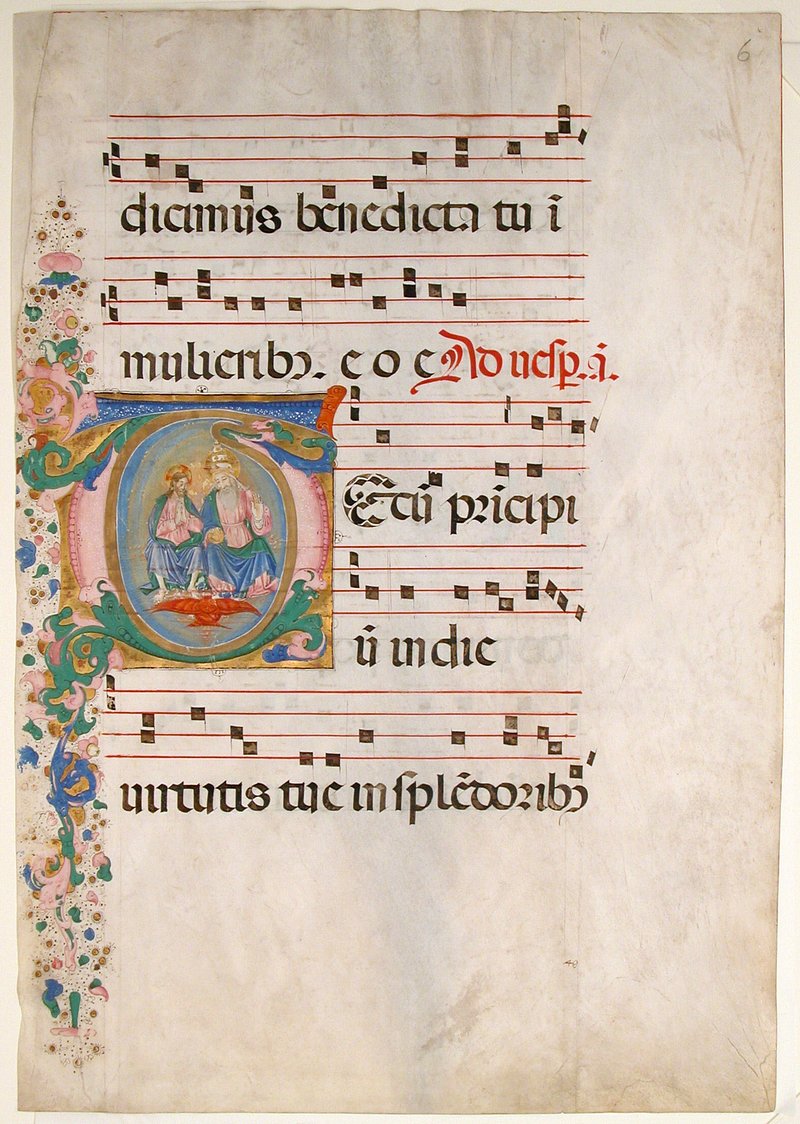 6
dicimus benedicta tu ī
mulieribꝫ. e o e Ad uesp. ā.
TEcū prīcipi
ū in die
uirtutis tue in splēdoribꝫ